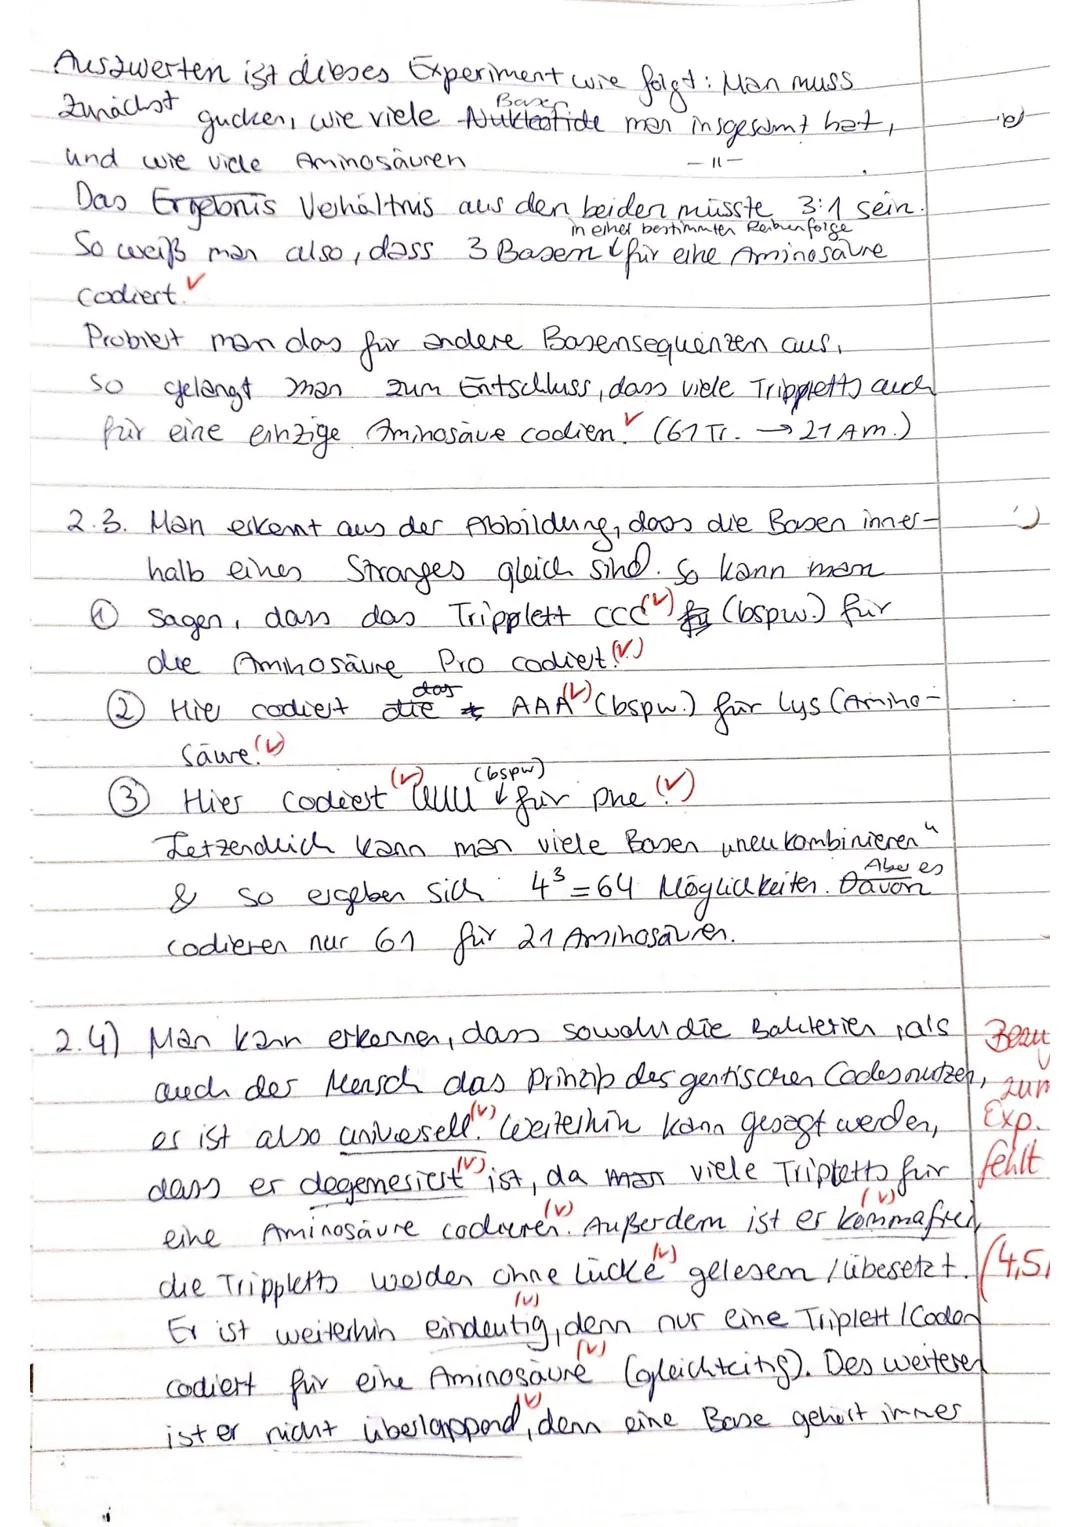 Auszwerten ist dieses Experiment wie folgt: Man muss
zunächst gucken, wie viele Nukleotide Basen man insgesamt hat,
und wie viele Aminosäuren -11-
Das Ergebnis Verhältnis aus den beiden müsste 3:1 sein.
in einer bestimmten Reihenfolge
So weiß man also, dass 3 Basen für eine Aminosäure
codiert. ✓
Probiert man das für andere Basensequenzen aus,
so gelangt man zum Entschluss, dass viele Trippletts auch
für eine einzige Aminosäure codien. ✓ (61 Tr. → 21 Am.)
2.3. Man erkennt aus der Abbildung, dass die Basen inner-
halb eines Stranges gleich sind. So kann man
① sagen, dass das Tripplett CCC (✓) (bspw.) für
die Aminosäure Pro codiert. (✓)
② Hier codiert die das AAA (✓) (bspw.) für Lys (Amino-
säure. (✓)
(bspw)
③ Hier codiert (✓) UUU für Phe. (✓)
Letzendlich kann man viele Basen „neu kombinieren“
& so ergeben sich 4³ = 64 Möglichkeiten. Davon Aber es
codieren nur 61 für 21 Aminosäuren.
2.4) Man kann erkennen, dass sowohl die Bakterien, als
auch der Mensch das Prinzip des gentischen Codes nutzen,
es ist also universell. (✓) Weiterhin kann gesagt werden,
dass er degeneriert (✓) ist, da man viele Tripletts für
eine Aminosäure codieren. (✓) Außerdem ist er kommafrei, (✓)
die Trippletts werden ohne Lücke (✓) gelesen / übesetzt.
Er ist weiterhin eindeutig, (✓) denn nur eine Triplett / Codon
codiert für eine Aminosäure (✓) (gleichzeitig). Des weiteren
ist er nicht überlappend, (✓) denn eine Base gehört immer
zum
Exp.
fehlt
(4,5,